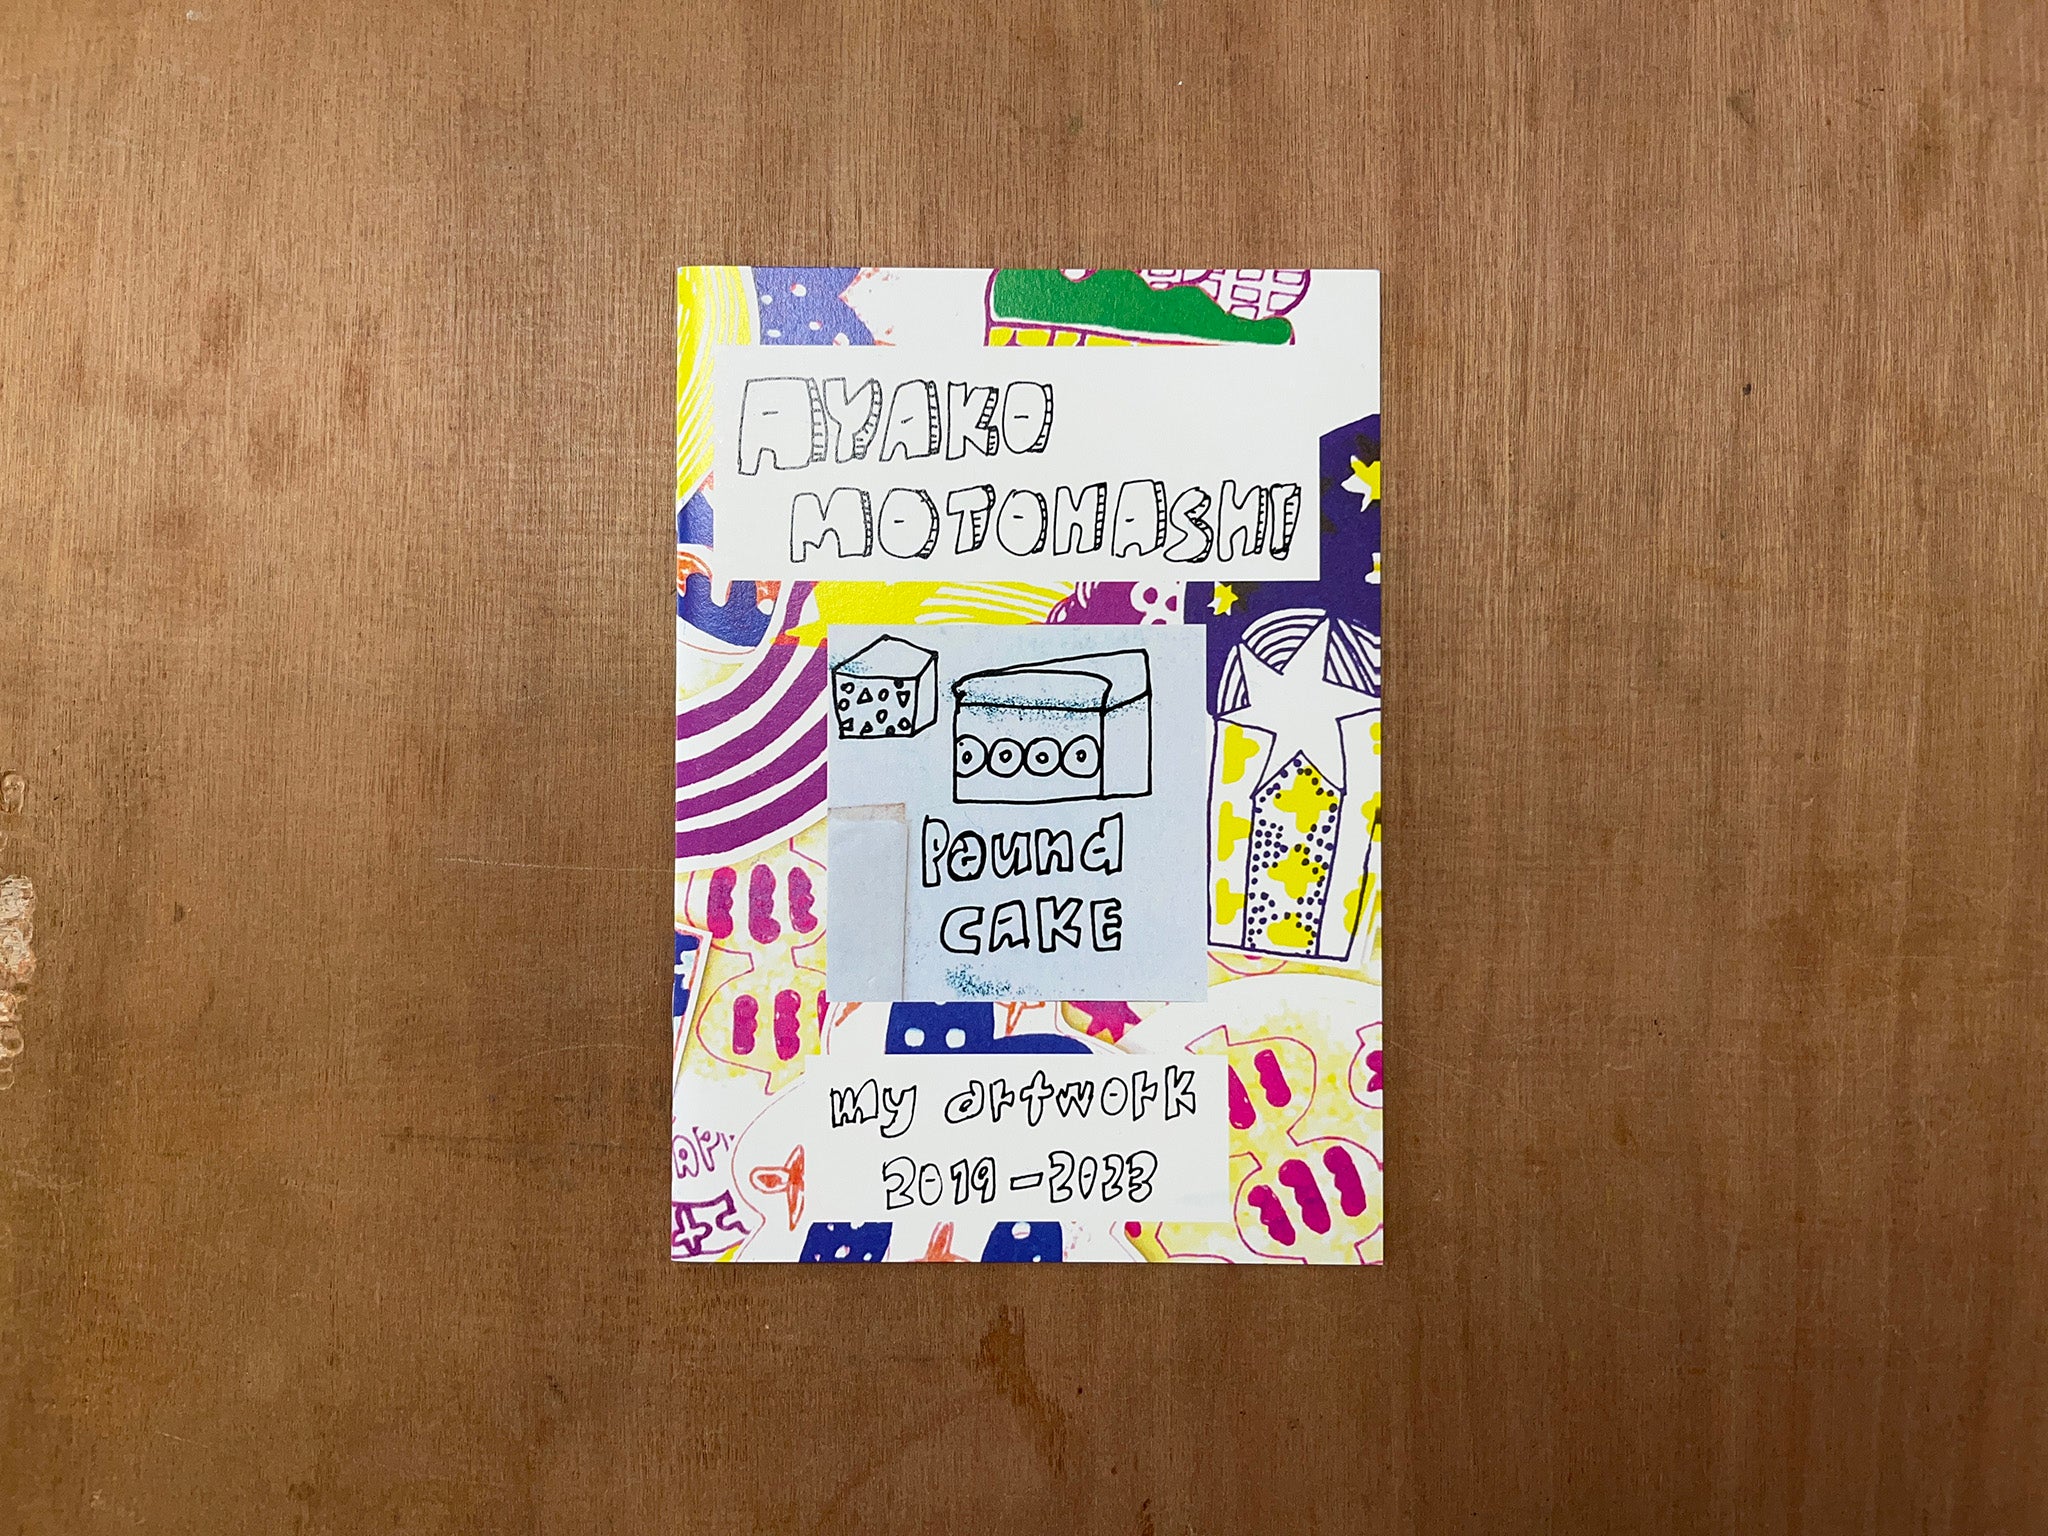 AYAKO
MOTOHASHI
Pound
CAKE
my artwork
2019-2023